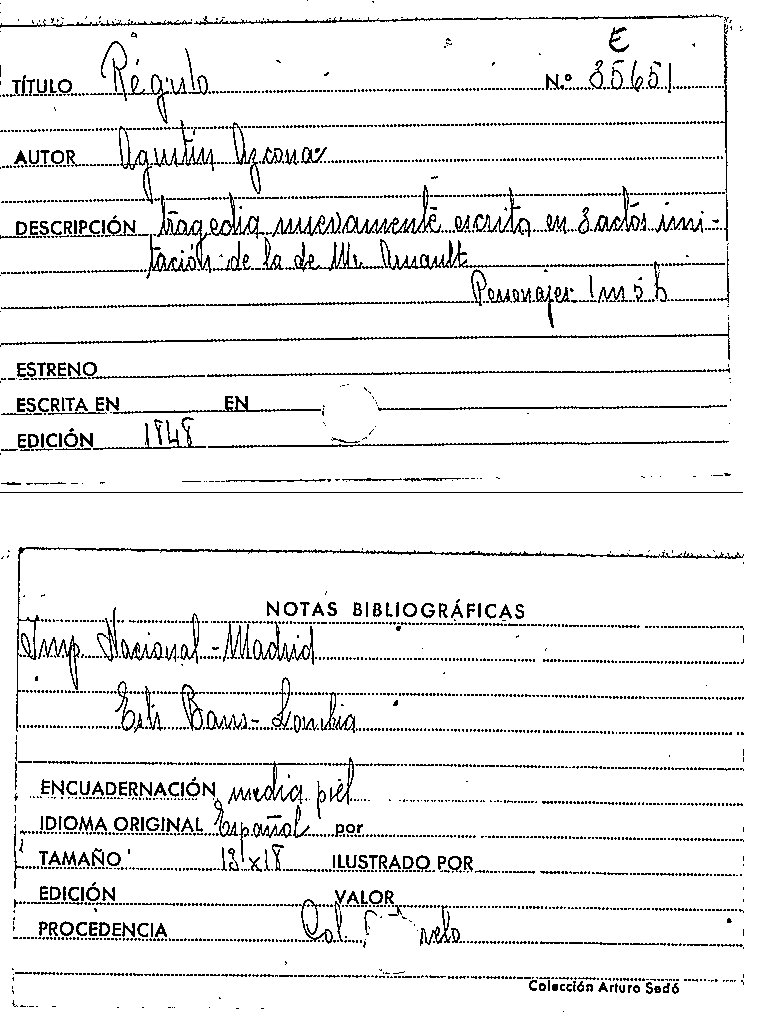 E
TÍTULO Régulo N.º 35651
AUTOR Agustín Azcona
DESCRIPCIÓN tragedia nuevamente escrita en 3 actos imi-
tación de la de Mr. Arnault
Personajes 1 m 5 h
ESTRENO
ESCRITA EN EN
EDICIÓN 1848
NOTAS BIBLIOGRÁFICAS
Imp. Nacional - Madrid
Bans - Lombia
ENCUADERNACIÓN media piel
IDIOMA ORIGINAL Español por
TAMAÑO 13 x 18 ILUSTRADO POR
EDICIÓN VALOR
PROCEDENCIA Col.
Colección Arturo Sedó